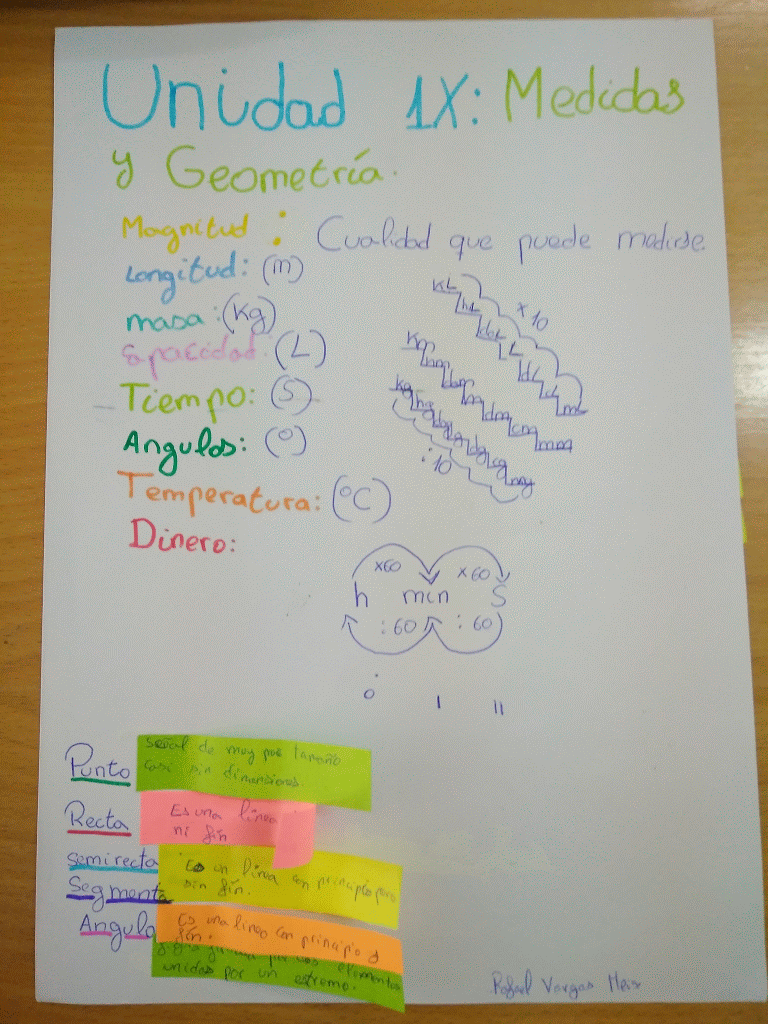 Unidad 1X: Medidas
y Geometría.
Magnitud : Cualidad que puede medirse.
Longitud: (m)
masa: (Kg)
(L)
Tiempo: (S)
Angulos: (º)
Temperatura: (ºC)
Dinero:
KL hL daL L dL cL mL
x 10
Km hm dam m dm cm mm
Kg hg dag g dg cg mg
:10
x60 x60
h min S
:60 :60
o I II
Punto señal de muy poc tamaño
casi sin dimensiones.
Recta Es una linea
ni fin
semirecta Es un linea con principio pero
sin fin.
Segmento
Angulo Es una linea con principio y
fin.
elementos
unidas por un estremo.
Rafael Vargas